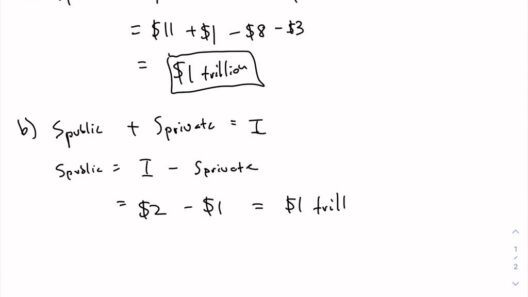 = $11 + $1 - $8 - $3
= $1 trillion
b) Spublic + Sprivate = I
Spublic = I - Sprivate
= $2 - $1 = $1 trill
1
/
2